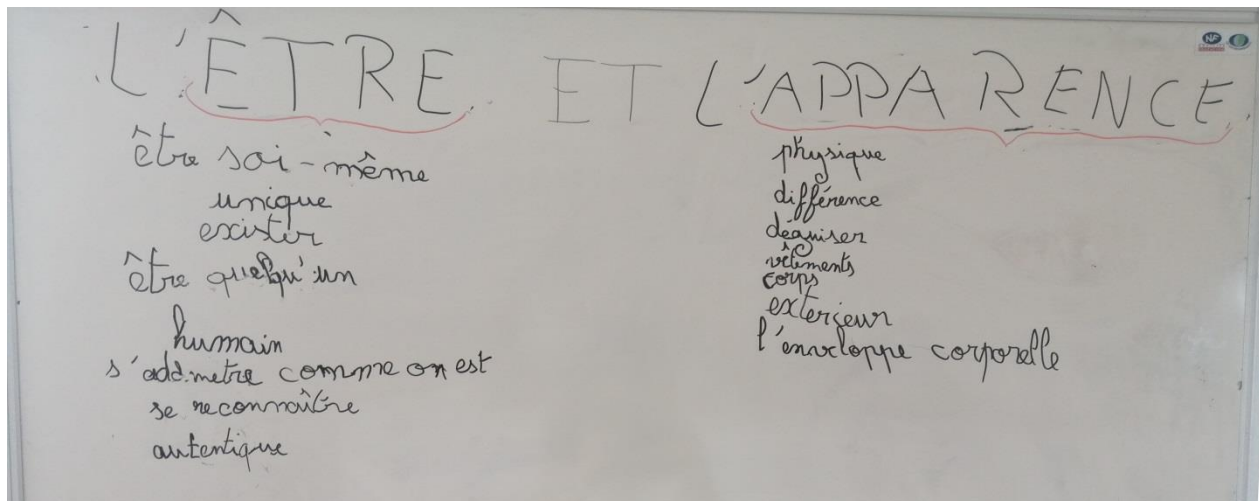 L'ÊTRE ET L'APPARENCE
être soi-même
unique
exister
être quelqu'un
humain
s'addmetre comme on est
se reconnaître
autentique
physique
différence
déguiser
vêtements
corps
exterieur
l'enveloppe corporelle
NF